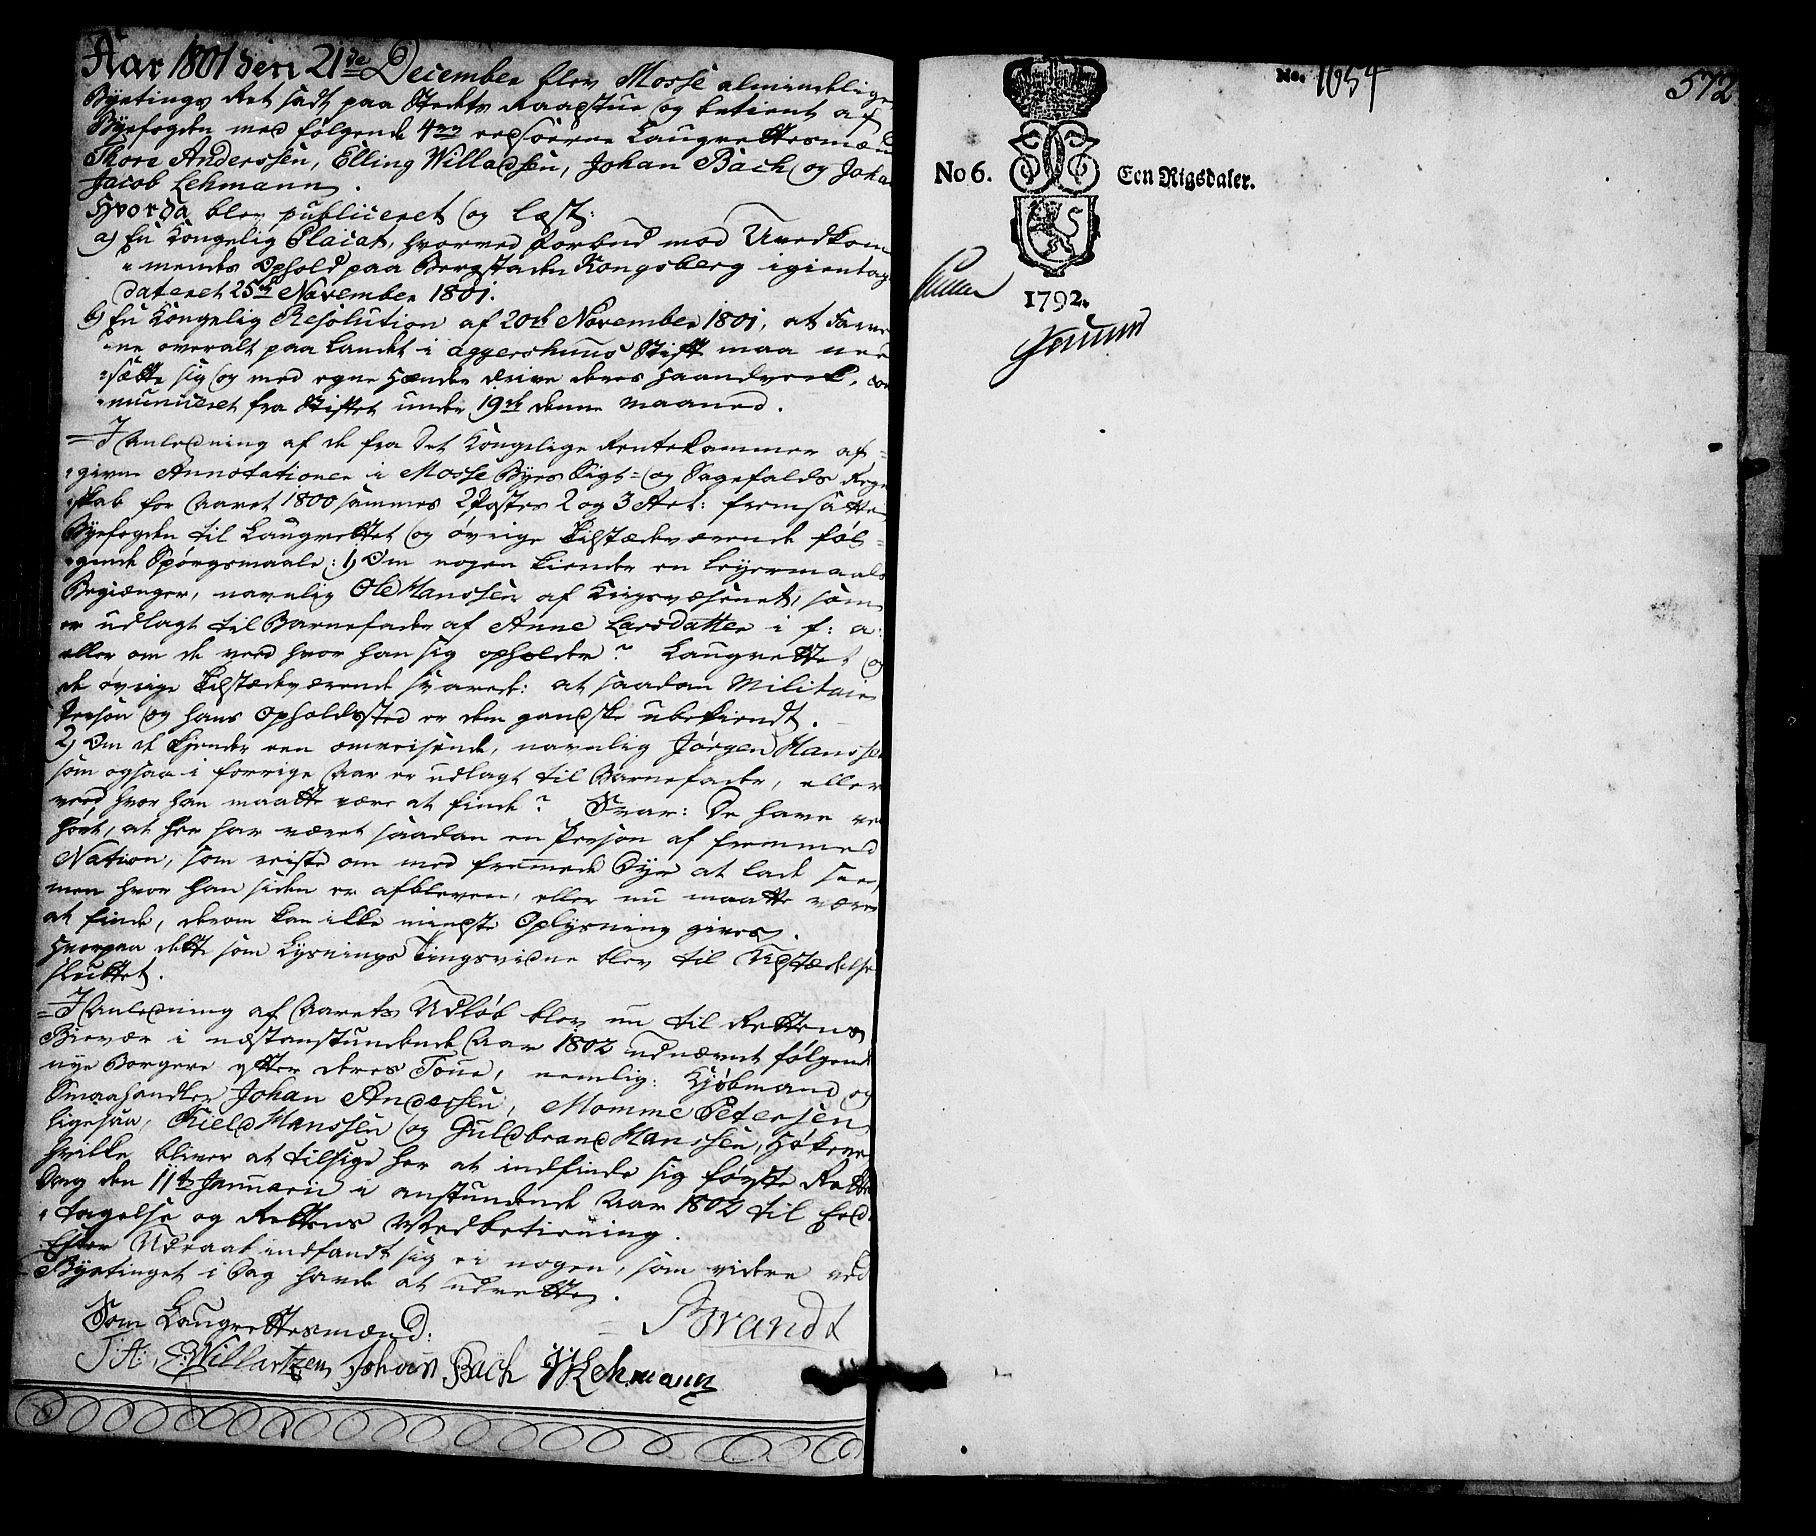 Aar 1801 den 21de December blev Mosse almindelige
Byetings Ret sadt paa Stedets Raadstue og betient af
Byefogden med følgende 4re eedsoerne Laugrettesmænd
Thore Anderssen, Elling Willadsen, Johan Bach og Johan
Jacob Lehmann.
Hvorda blev publiceret og læst:
a) En Kongelig Placat, hvorved Forbud mod Uvedkom
mendes Ophold paa Bergstaden Kongsberg igientag
dateret 25de November 1801.
b) En Kongelig Resolution af 20de November 1801, at
ne overalt paa Landet i Aggershuus Stift maa ned
sætte sig og med egne Hænder drive deres Haandverk, com
municeret fra Stiftet under 19de denne Maaned.
I Anledning af de fra Det Kongelige Rentekammer af-
givne Annotationer i Mosse Byes Sigt- og Sagefalds Regn
skab for Aaret 1800 sammes 2 Poster 2 og 3 Art: fremsatte
Byefogden til Laugrettet og øvrige Tilstædeværende føl-
gende Spørgsmaale: 1) Om nogen kiender en Leyermaals
Begiænger, navnlig Ole Hanssen af Krigsvæsenet, som
er udlagt til Barnefader af Anne Larsdatter i f: a:
eller om de veed hvor han sig opholder? Laugrettet og
de øvrige Tilstædeværende svarede: at saadan Militair
Person og hans Opholdssted er dem gandske ubekiendt.
2) Om de kiender een omreisende, navnlig Jørgen Hanssen
som ogsaa i forrige Aar er udlagt til Barnefader, eller
veed hvor han maatte være at finde? Svar: De have vel
hørt, at her har været saadan en Person af fremmed
Nation, som reiste om med fremmede Dyr at lade see,
men hvor han siden er afbleven, eller nu maatte være
at finde, derom kan ikke mindste Oplysning gives.
Hvorpaa dette som Lysnings Tingsvidne blev til Udstædelse
sluttet.
I Anledning af Aarets Udløb blev nu til Rettens
Bievær i næstanstundende Aar 1802 udnævnt følgende
nye Borgere efter deres Tour, nemlig: Kjøbmand og
Smaahandler Johan Andersen, Momme Petersen,
ligesaa, Kield Hanssen og Guldbrand Hanssen, Høkere
hvilke bliver at tilsige her at indfinde sig første Rette
Dag den 11te Januarii i anstundende Aar 1802 til Eed
tagelse og Rettens Medbetiening.
Efter Udraab indfandt sig ei nogen, som videre ved
Byetinget i Dag havde at udrette.
Brandt
Som Laugrettesmænd:
T: A: E: Willartzen, Johan Bach JJLehmann
No. 1654
572
No 6.
Een Rigsdaler.
1792.